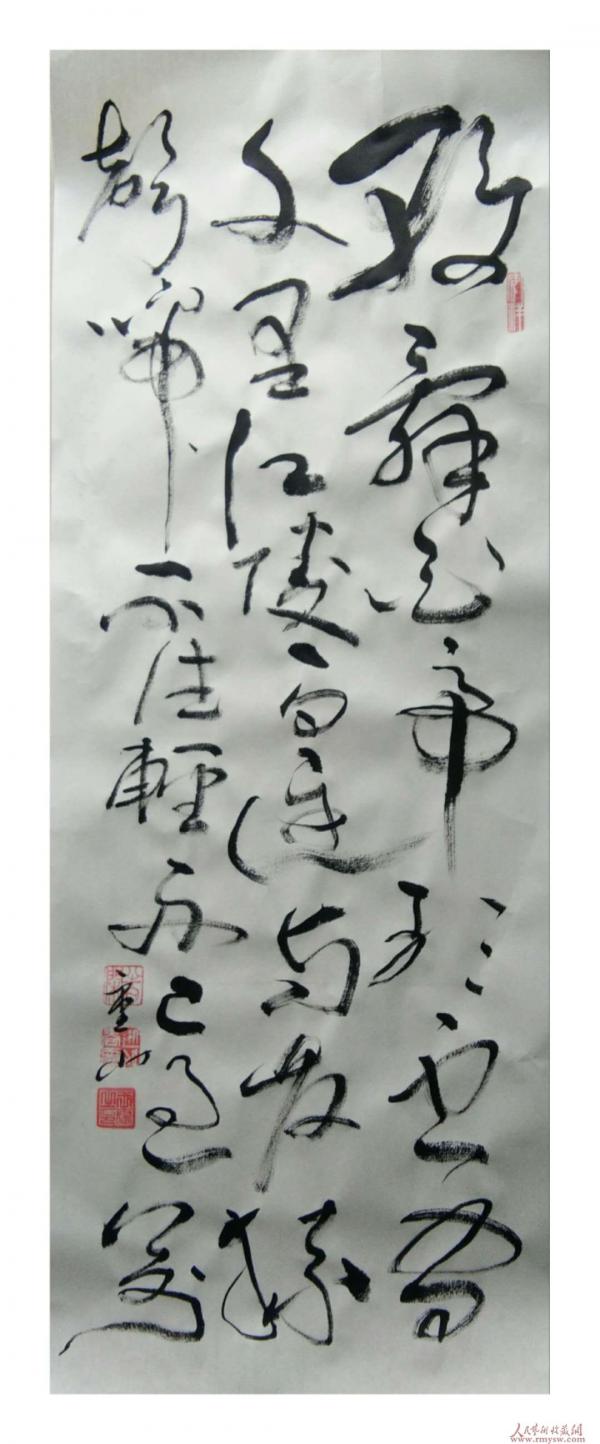 朝辭白帝彩雲間
千里江陵一日還兩岸猿
聲啼不住輕舟已過萬
重山
人民艺术收藏网
www.rmysw.com